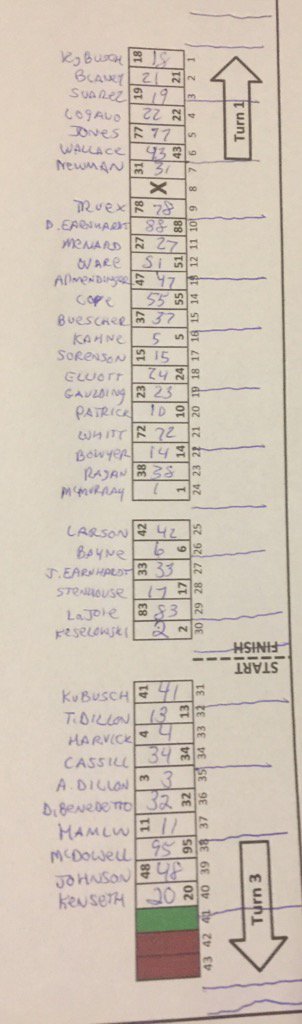 Ky BUSCH 18 18 1
BLANEY 21 21 2
SUAREZ 19 19 3
LOGANO 22 22 4
JONES 77 77 5
WALLACE 43 43 6
NEWMAN 31 31 7
X 8
TRUEX 78 78 9
D. EARNHARDT 88 88 10
MENARD 27 27 11
WARE 51 51 12
ALLMENDINGER 47 47 13
COPE 55 55 14
BUESCHER 37 37 15
KAHNE 5 5 16
SORENSON 15 15 17
ELLIOTT 24 24 18
GAULDING 23 23 19
PATRICK 10 10 20
WHITT 72 72 21
BOWYER 14 14 22
RAGAN 38 38 23
MCMURRAY 1 1 24
LARSON 42 42 25
BAYNE 6 6 26
J. EARNHARDT 33 33 27
STENHOUSE 17 17 28
LAJOIE 83 83 29
KESELOWSKI 2 2 30
KUBUSCH 41 41 31
T. DILLON 13 13 32
HARVICK 4 4 33
CASSILL 34 34 34
A. DILLON 3 3 35
DiBENEDETTO 32 32 36
HAMLIN 11 11 37
MCDOWELL 95 95 38
JOHNSON 48 48 39
KENSETH 20 20 40
41
42
43
Turn 1
FINISH
START
Turn 3